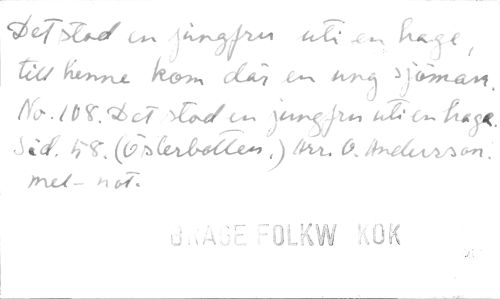 Det stod en jungfru uti en hage,
till henne kom där en ung sjöman.
No. 108. Det stod en jungfru uti en hage.
Sid. 58. (Österbotten.) Arr. O. Andersson.
mel-not.
BRAGE FOLKW KOK